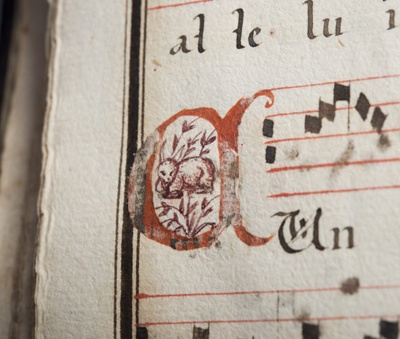 al le lu i
Un